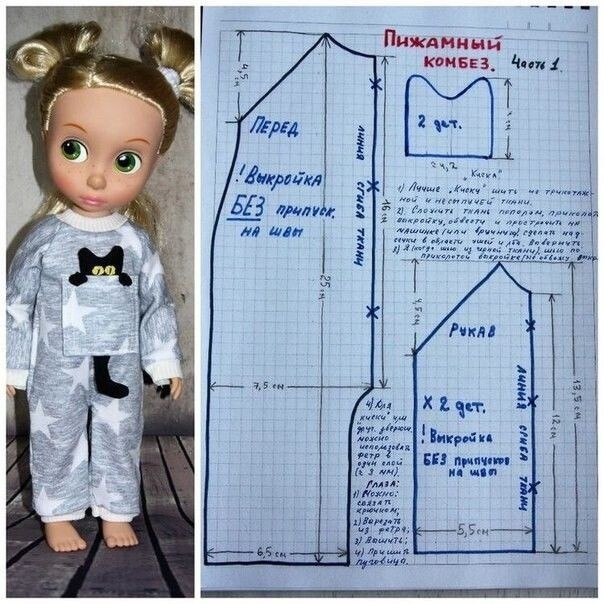 Пижамный
комбез.
Часть 1.
4,5 см
Перед
! Выкройка
БЕЗ припуск.
на швы
линия сгиба ткани
16 см
25 см
7,5 см
6,5 см
2 дет.
≈ 4,2
"Киска"
1) Лучше "киску" шить из трикотаж-
ной и несыпучей ткани.
2) Сложить ткань пополам, приколоть
выкройку, обвести и прострочить на
машинке (или вручную) сделать над-
сечки в области ушей и лба. Вывернуть
3) Я (когда шью из чёрной ткани), шью по
приколотой выкройке (не обвожу
4) Для
"киски" или
друг. зверюш.
можно
использовать
фетр в
один слой
(≈ 3 мм).
Глаза:
1) Можно:
связать
крючком;
2) Вырезать
из фетра;
3) Вышить;
4) Пришить
пуговица.
4,5 см
Рукав
Х 2 дет.
! Выкройка
БЕЗ припусков
на швы
линия сгиба ткани
12 см
13,5 см
5,5 см